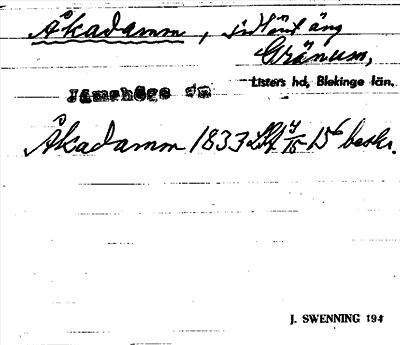 Åkadamm, sidlänt äng
Gränum,
Listers hd, Blekinge län.
Jämshögs sn
Åkadamm 1833 LSA 4/15 15⁶ beskr.
J. SWENNING 194